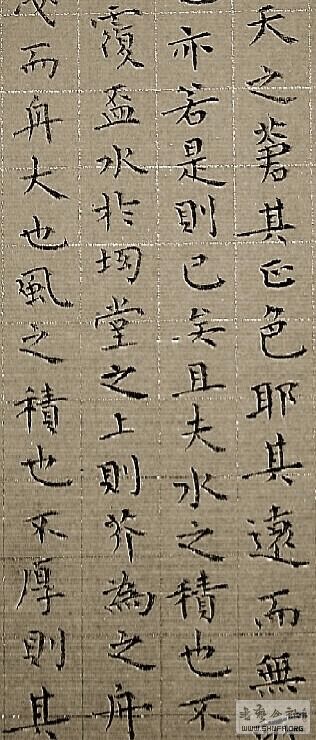 天之蒼其正色耶其遠而無
亦若是則已矣且夫水之積也不
覆盃水於坳堂之上則芥為之舟
而舟大也風之積也不厚則其